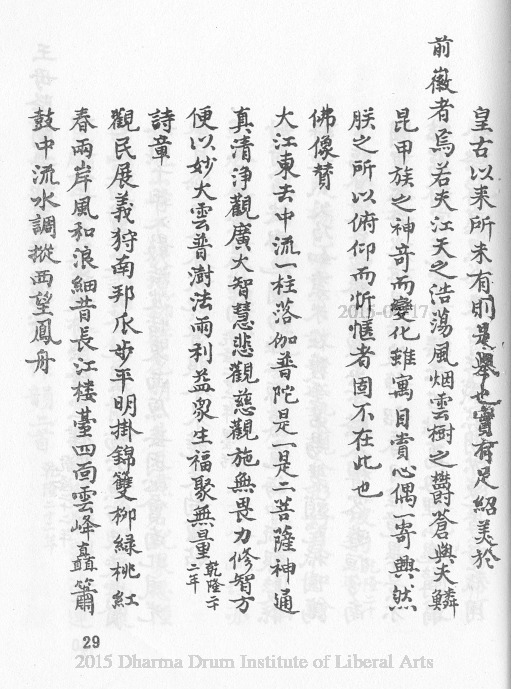 皇古以来所未有則是舉也實有足紹美於
前徽者焉若夫江天之浩蕩風烟雲樹之欝蒼與夫鱗
昆甲族之神竒而變化雖寓目賞心偶一寄興然
朕之所以俯仰而忻愜者固不在此也
佛像賛
大江東去中流一柱落伽普陀是一是二菩薩神通
真清浄觀廣大智慧悲觀慈觀施無畏力修智方
便以妙大雲普澍法雨利益衆生福聚無量乾隆二十
二年
詩章
觀民展義狩南邦瓜步平明掛錦雙柳緑桃紅
春兩岸風和浪細昔長江楼臺四面雲峰矗簫
鼓中流水調摐西望鳳舟
29
2015 Dharma Drum Institute of Liberal Arts